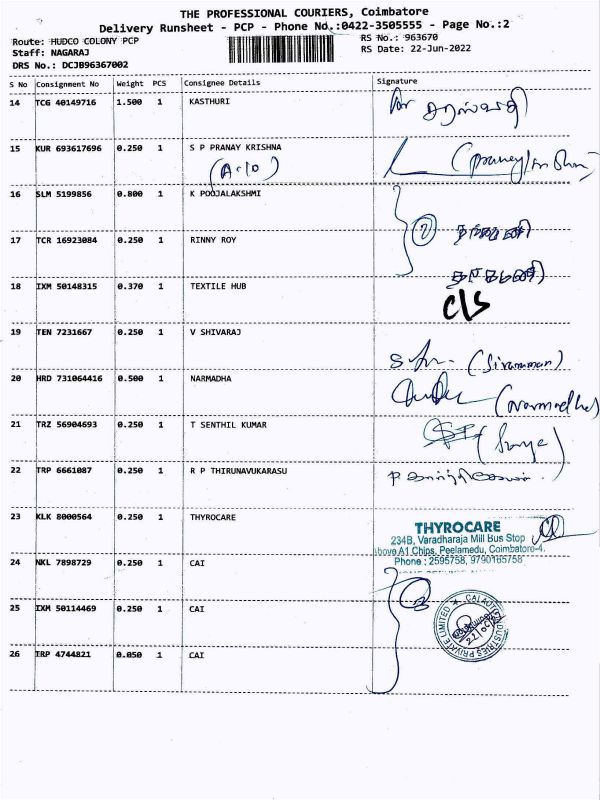 THE PROFESSIONAL COURIERS, Coimbatore
Delivery Runsheet - PCP - Phone No.:0422-3505555 - Page No.:2
Route: HUDCO COLONY PCP
Staff: NAGARAJ
DRS No.: DCJB96367002
RS No.: 963670
RS Date: 22-Jun-2022
S No Consignment No Weight PCS Consignee Details Signature
14 TCG 40149716 1.500 1 KASTHURI
15 KUR 693617696 0.250 1 S P PRANAY KRISHNA
(A-10)
16 SLM 5199856 0.800 1 K POOJALAKSHMI
17 TCR 16923084 0.250 1 RINNY ROY
18 IXM 50148315 0.370 1 TEXTILE HUB
C/S
19 TEN 7231667 0.250 1 V SHIVARAJ
(Sivaraman)
20 HRD 731064416 0.500 1 NARMADHA
(Narmadha)
21 TRZ 56904693 0.250 1 T SENTHIL KUMAR
(Surya)
22 TRP 6661087 0.250 1 R P THIRUNAVUKARASU
23 KLK 8000564 0.250 1 THYROCARE
THYROCARE
234B, Varadharaja Mill Bus Stop
above A1 Chips, Peelamedu, Coimbatore-4.
Phone : 2595758, 9790165758
24 NKL 7898729 0.250 1 CAI
25 IXM 50114469 0.250 1 CAI
CAI AUTO INDUSTRIES PRIVATE LIMITED
26 TRP 4744821 0.050 1 CAI